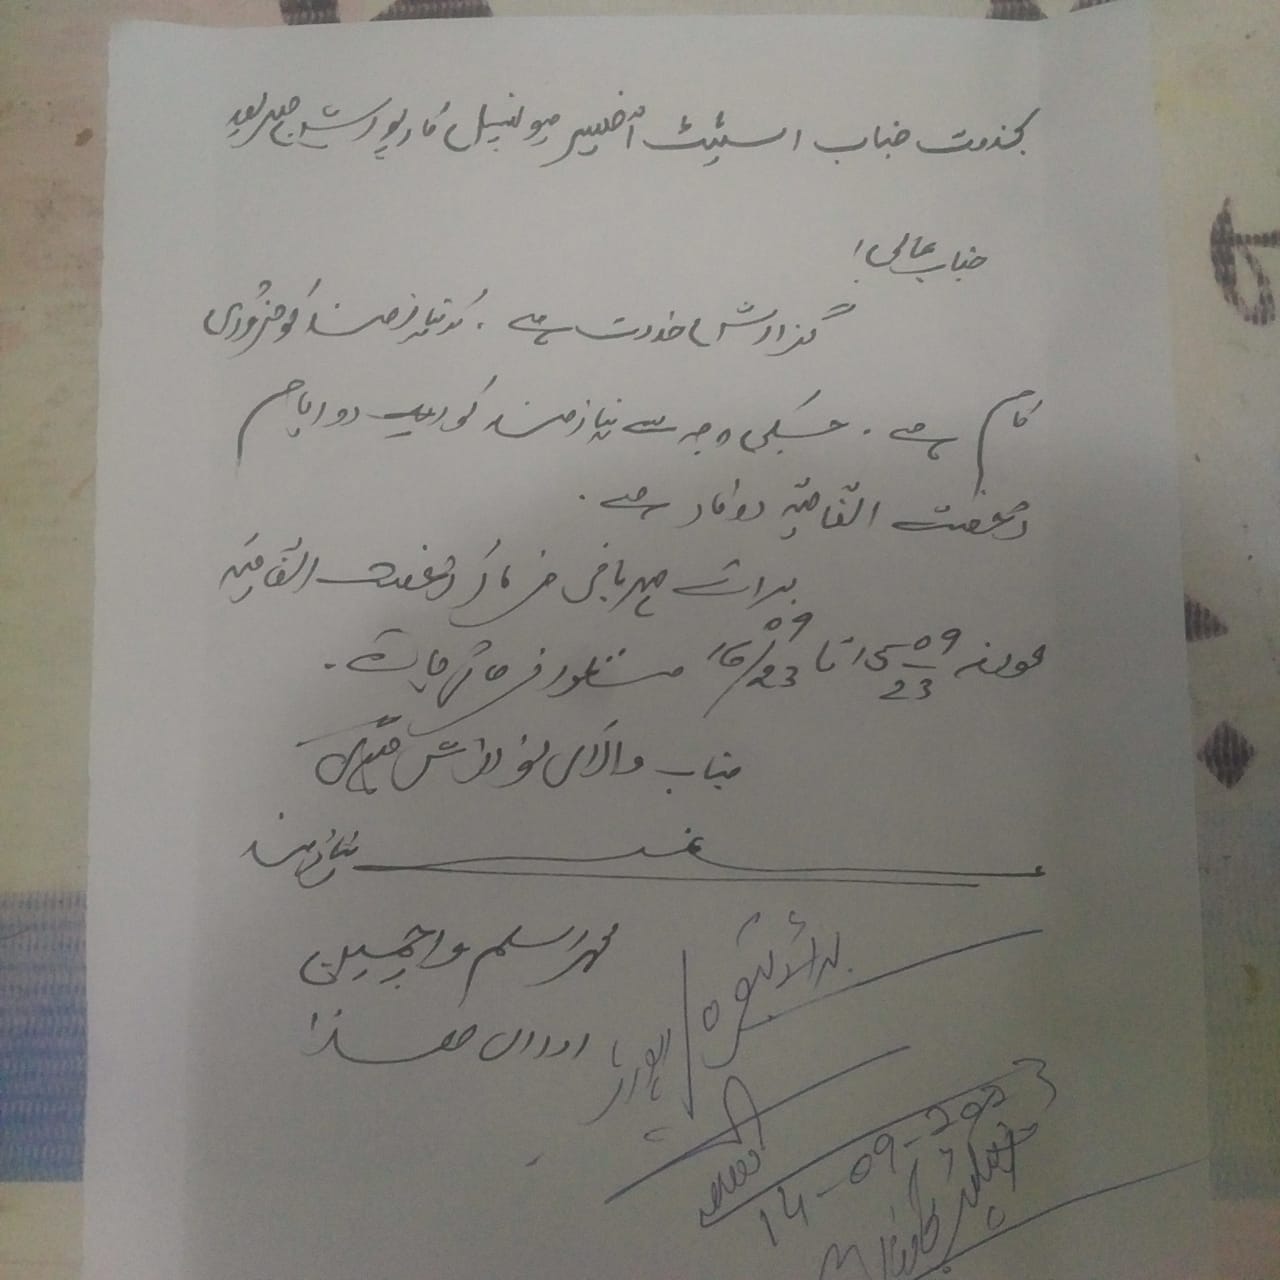 بخدمت جناب اسٹیٹ آفیسر میونسپل کارپوریشن میرپور
جناب عالی!
گزارش خدمت ہے۔ کہ نیازمند کو ضروری
کام ہے۔ جسکی وجہ سے نیازمند کو دو ایام
رخصت اتفاقیہ درکار ہے۔
برائے مہربانی فرما کر رخصت اتفاقیہ
مورخہ 15-09-23 تا 16/09/23 منظور فرمائی جائے۔
جناب والا کی نوازش ہوگی
نیازمند
محمد اسلم واچمین
ادارہ ھذا
برائے تبصرہ / رپورٹ
14-09-2023